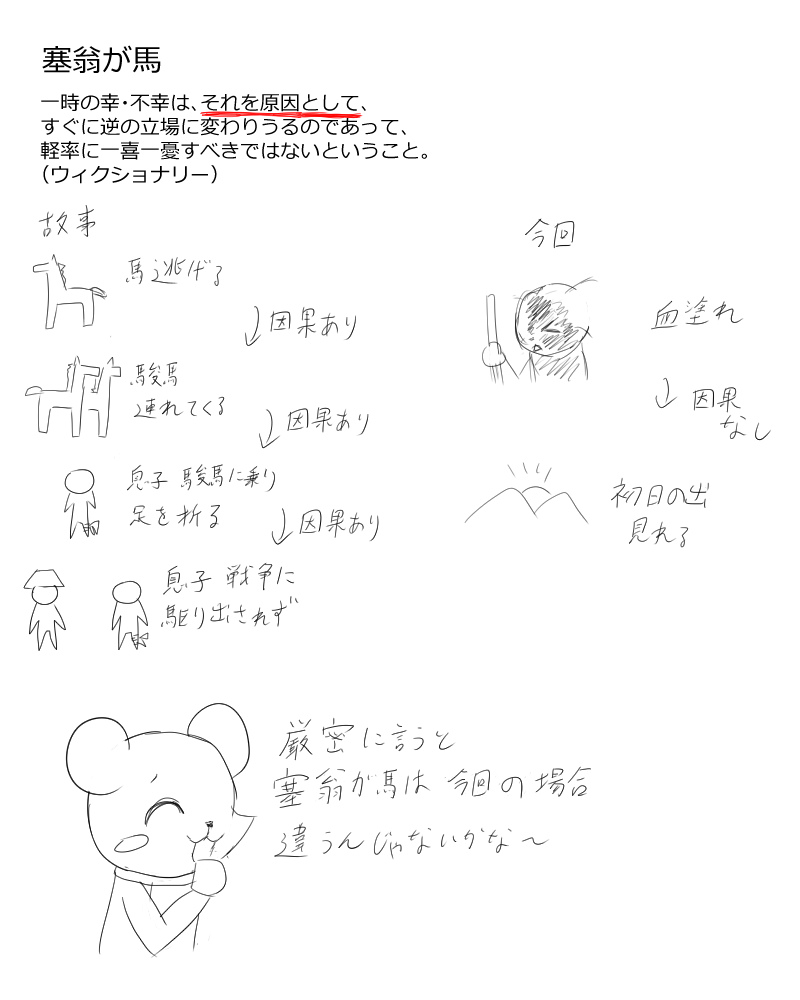 塞翁が馬
一時の幸・不幸は、それを原因として、
すぐに逆の立場に変わりうるのであって、
軽率に一喜一憂すべきではないということ。
（ウィクショナリー）
故事
馬逃げる
↓因果あり
駿馬
連れてくる
↓因果あり
息子 駿馬に乗り
足を折る
↓因果あり
息子 戦争に
駆り出されず
今回
血塗れ
↓因果
なし
初日の出
見れる
厳密に言うと
塞翁が馬は 今回の場合
違うんじゃないかな〜